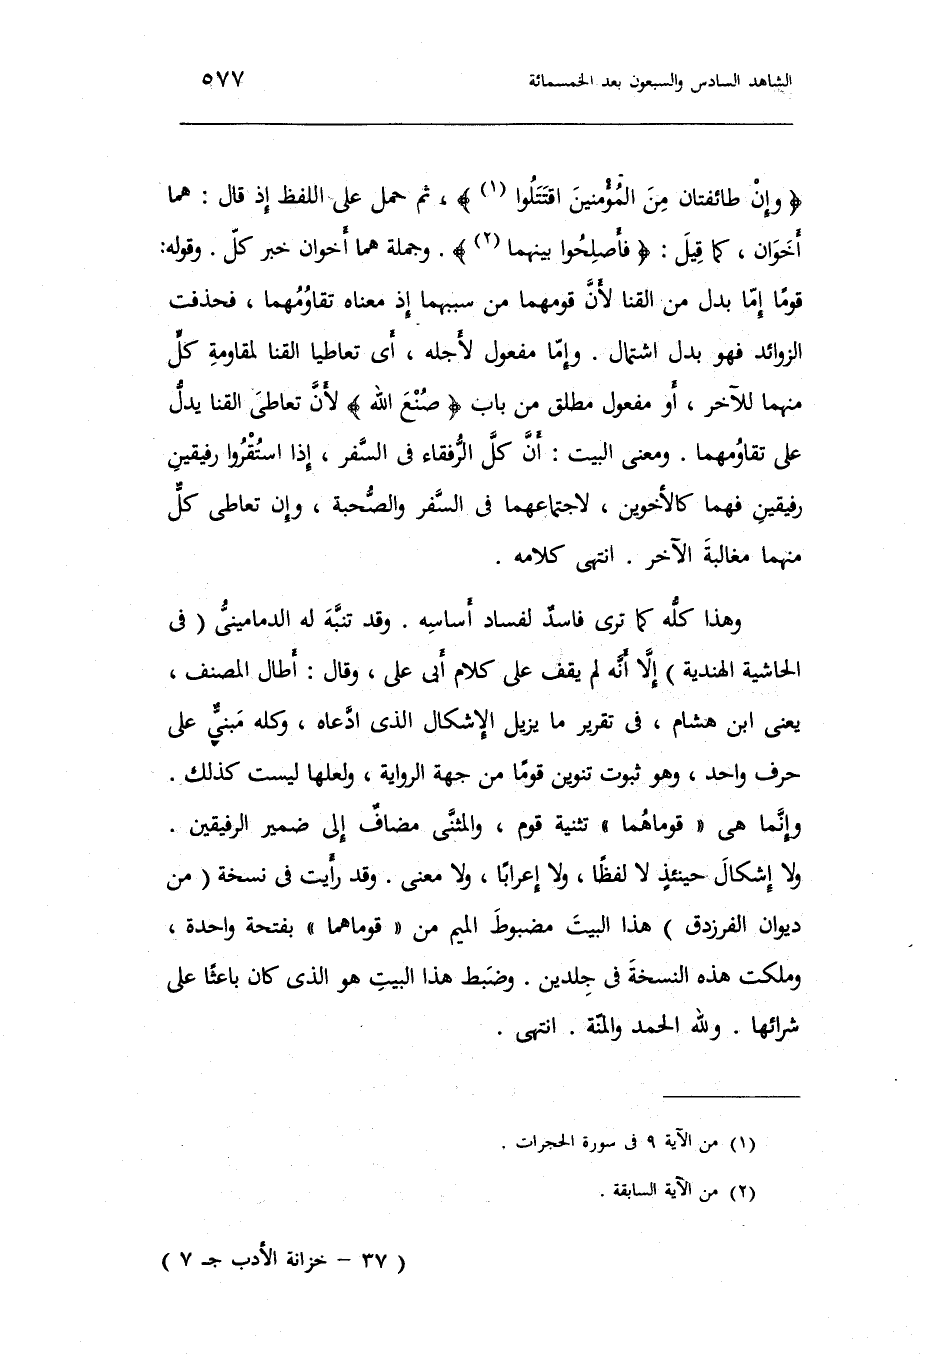 الشاهد السادس والسبعون بعد الخمسمائة ٥٧٧
﴿ وإنْ طائفتان مِنَ المُؤْمنينَ اقتَتَلُوا (١) ﴾ ، ثم حمل على اللفظ إذ قال : هما
أخَوَان ، كما قِيلَ : ﴿ فأَصلِحُوا بينهما (٢) ﴾ . وجملة هما أخوان خبر كلّ . وقوله:
قومًا إمّا بدل من القنا لأنَّ قومهما من سببهما إذ معناه تقاوُمُهما ، فحذفت
الزوائد فهو بدل اشتمال . وإمّا مفعول لأجله ، أى تعاطيا القنا لمقاومةِ كلٍّ
منهما للآخر ، أو مفعول مطلق من باب ﴿ صُنْعَ الله ﴾ لأنَّ تعاطىَ القنا يدلُّ
على تقاوُمهما . ومعنى البيت : أنَّ كلَّ الرُّفقاء فى السَّفر ، إذا استُقْرُوا رفيقينِ
رفيقينِ فهما كالأخوين ، لاجتماعهما فى السَّفر والصُّحبة ، وإن تعاطى كلٌّ
منهما مغالبةَ الآخر . انتهى كلامه .
وهذا كلُّه كما ترى فاسدٌ لفساد أساسِه . وقد تنبَّهَ له الدمامينىُّ ( فى
الحاشية الهندية ) إلَّا أنَّه لم يقف على كلام أبى على ، وقال : أطال المصنف ،
يعنى ابن هشام ، فى تقرير ما يزيل الإشكال الذى ادَّعاه ، وكله مَبنىٌّ على
حرف واحد ، وهو ثبوت تنوين قومًا من جهة الرواية ، ولعلها ليست كذلك .
وإنَّما هى « قوماهُما » تثنية قوم ، والمثنَّى مضافٌ إلى ضمير الرفيقين .
ولا إشكالَ حينئذٍ لا لفظًا ، ولا إعرابًا ، ولا معنى . وقد رأيت فى نسخة ( من
ديوان الفرزدق ) هذا البيتَ مضبوطَ الميم من « قوماهما » بفتحة واحدة ،
وملكت هذه النسخةَ فى جِلدين . وضَبط هذا البيتِ هو الذى كان باعثًا على
شرائها . ولله الحمد والمنّة . انتهى .
(١) من الآية ٩ فى سورة الحجرات .
(٢) من الآية السابقة .
( ٣٧ – خزانة الأدب جـ ٧ )